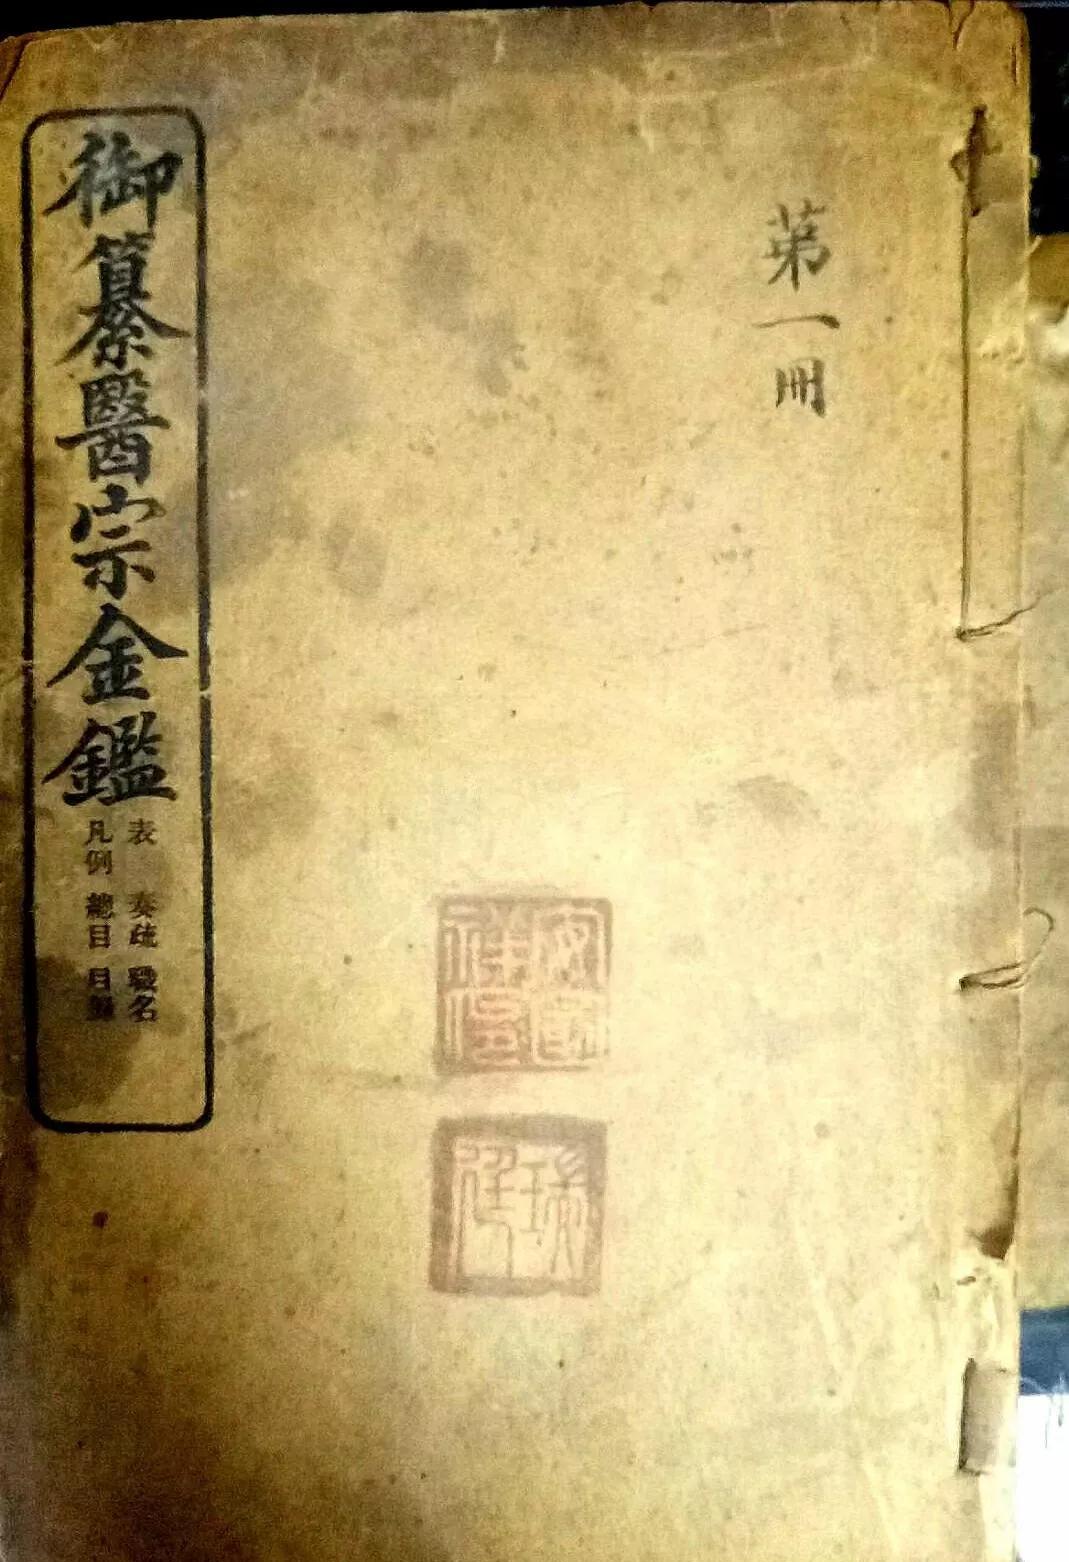 第一冊
御纂醫宗金鑑
表 奏疏 職名
凡例 總目 目錄